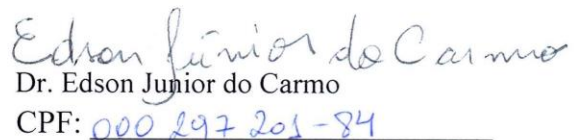 Edson Júnior do Carmo
Dr. Edson Junior do Carmo
CPF: 000 297 201-84